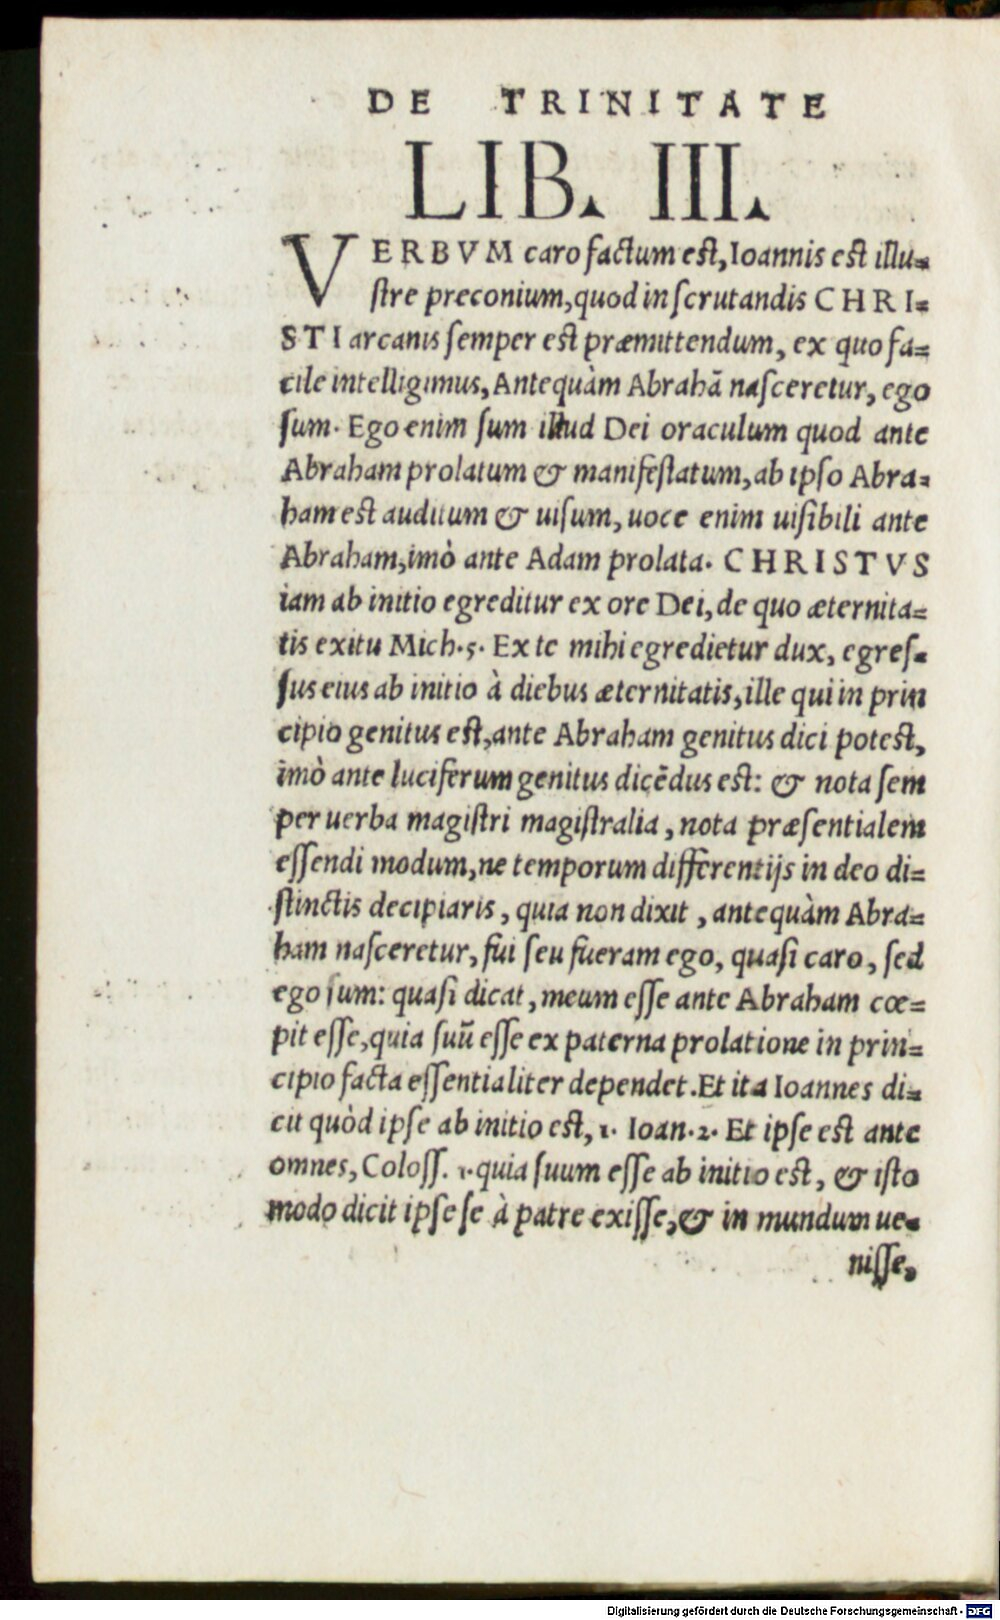 DE TRINITATE
LIB. III.
VERBVM caro factum est, Ioannis est illu-
stre preconium, quod in scrutandis CHRI-
STI arcanis semper est præmittendum, ex quo fa-
cile intelligimus, Antequàm Abrahã nasceretur, ego
sum. Ego enim sum illud Dei oraculum quod ante
Abraham prolatum & manifestatum, ab ipso Abra-
ham est auditum & uisum, uoce enim uisibili ante
Abraham, imò ante Adam prolata. CHRISTVS
iam ab initio egreditur ex ore Dei, de quo æternita-
tis exitu Mich. 5. Ex te mihi egredietur dux, egres-
sus eius ab initio à diebus æternitatis, ille qui in prin
cipio genitus est, ante Abraham genitus dici potest,
imò ante luciferum genitus dicẽdus est: & nota sem
per uerba magistri magistralia, nota præsentialem
essendi modum, ne temporum differentijs in deo di-
stinctis decipiaris, quia non dixit, antequàm Abra-
ham nasceretur, fui seu fueram ego, quasi caro, sed
ego sum: quasi dicat, meum esse ante Abraham cœ-
pit esse, quia suũ esse ex paterna prolatione in prin-
cipio facta essentialiter dependet. Et ita Ioannes di-
cit quòd ipse ab initio est, 1. Ioan. 2. Et ipse est ante
omnes, Coloss. 1. quia suum esse ab initio est, & isto
modo dicit ipse se à patre exisse, & in mundum ue-
nisse,
Digitalisierung gefördert durch die Deutsche Forschungsgemeinschaft - DFG